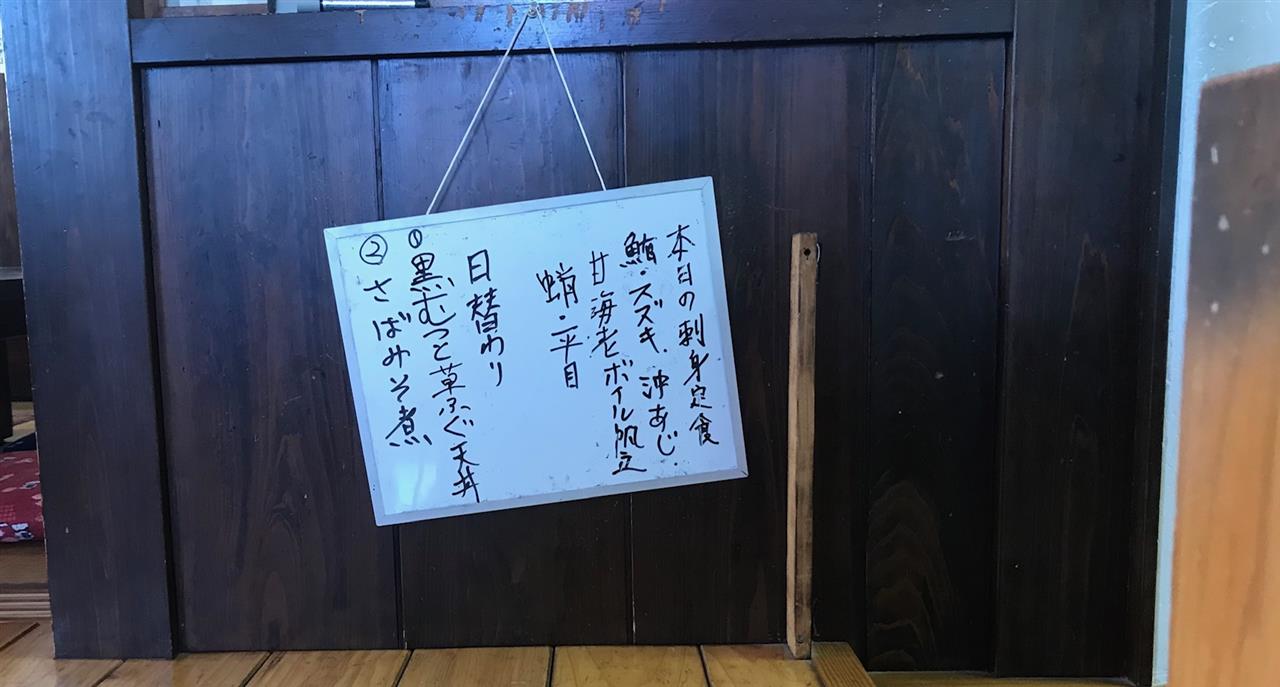 本日の刺身定食
鮪・スズキ・沖あじ
甘海老ボイル帆立
蛸・平目
日替わり
①黒むつと草ふぐ天丼
②さばみそ煮